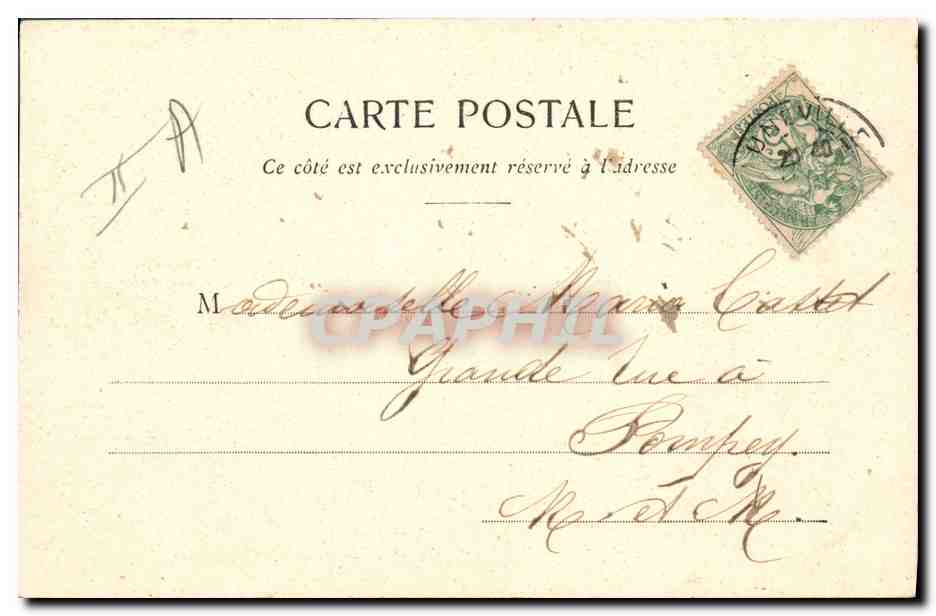 CARTE POSTALE
Ce côté est exclusivement réservé à l'adresse
Mademoiselle Maria Castet
Grande rue à
Pompey.
M et M.
CPAPHIL